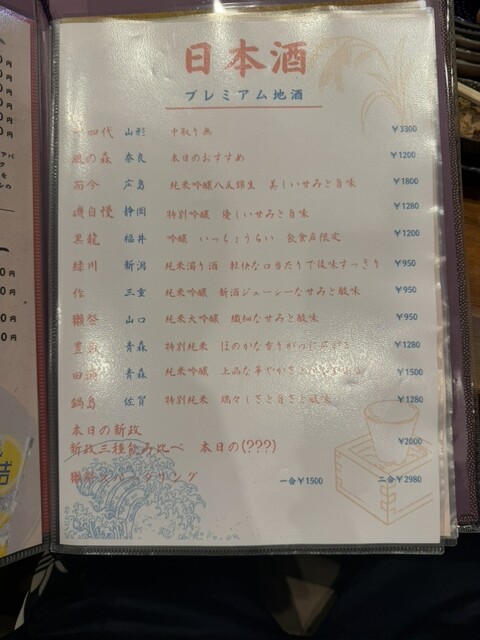 日本酒
プレミアム地酒
十四代 山形 中取り無 ¥3300
風の森 奈良 本日のおすすめ ¥1200
而今 広島 純米吟醸八反錦生 美しい甘みと旨味 ¥1800
磯自慢 静岡 特別吟醸 優しい甘みと旨味 ¥1280
黒龍 福井 吟醸 いっちょうらい 飲食店限定 ¥1200
緑川 新潟 純米濁り酒 軽快な口当たりで後味すっきり ¥950
作 三重 純米吟醸 新酒ジューシーな甘みと酸味 ¥950
獺祭 山口 純米大吟醸 繊細な甘みと酸味 ¥950
豊盃 青森 特別純米 ほのかな香りが ¥1280
田酒 青森 純米吟醸 上品な華やかさと ¥1500
鍋島 佐賀 特別純米 瑞々しさと旨さと酸味 ¥1280
本日の新政
新政三種飲み比べ 本日の(???) ¥2000
獺祭スパークリング 一合¥1500 二合¥2980